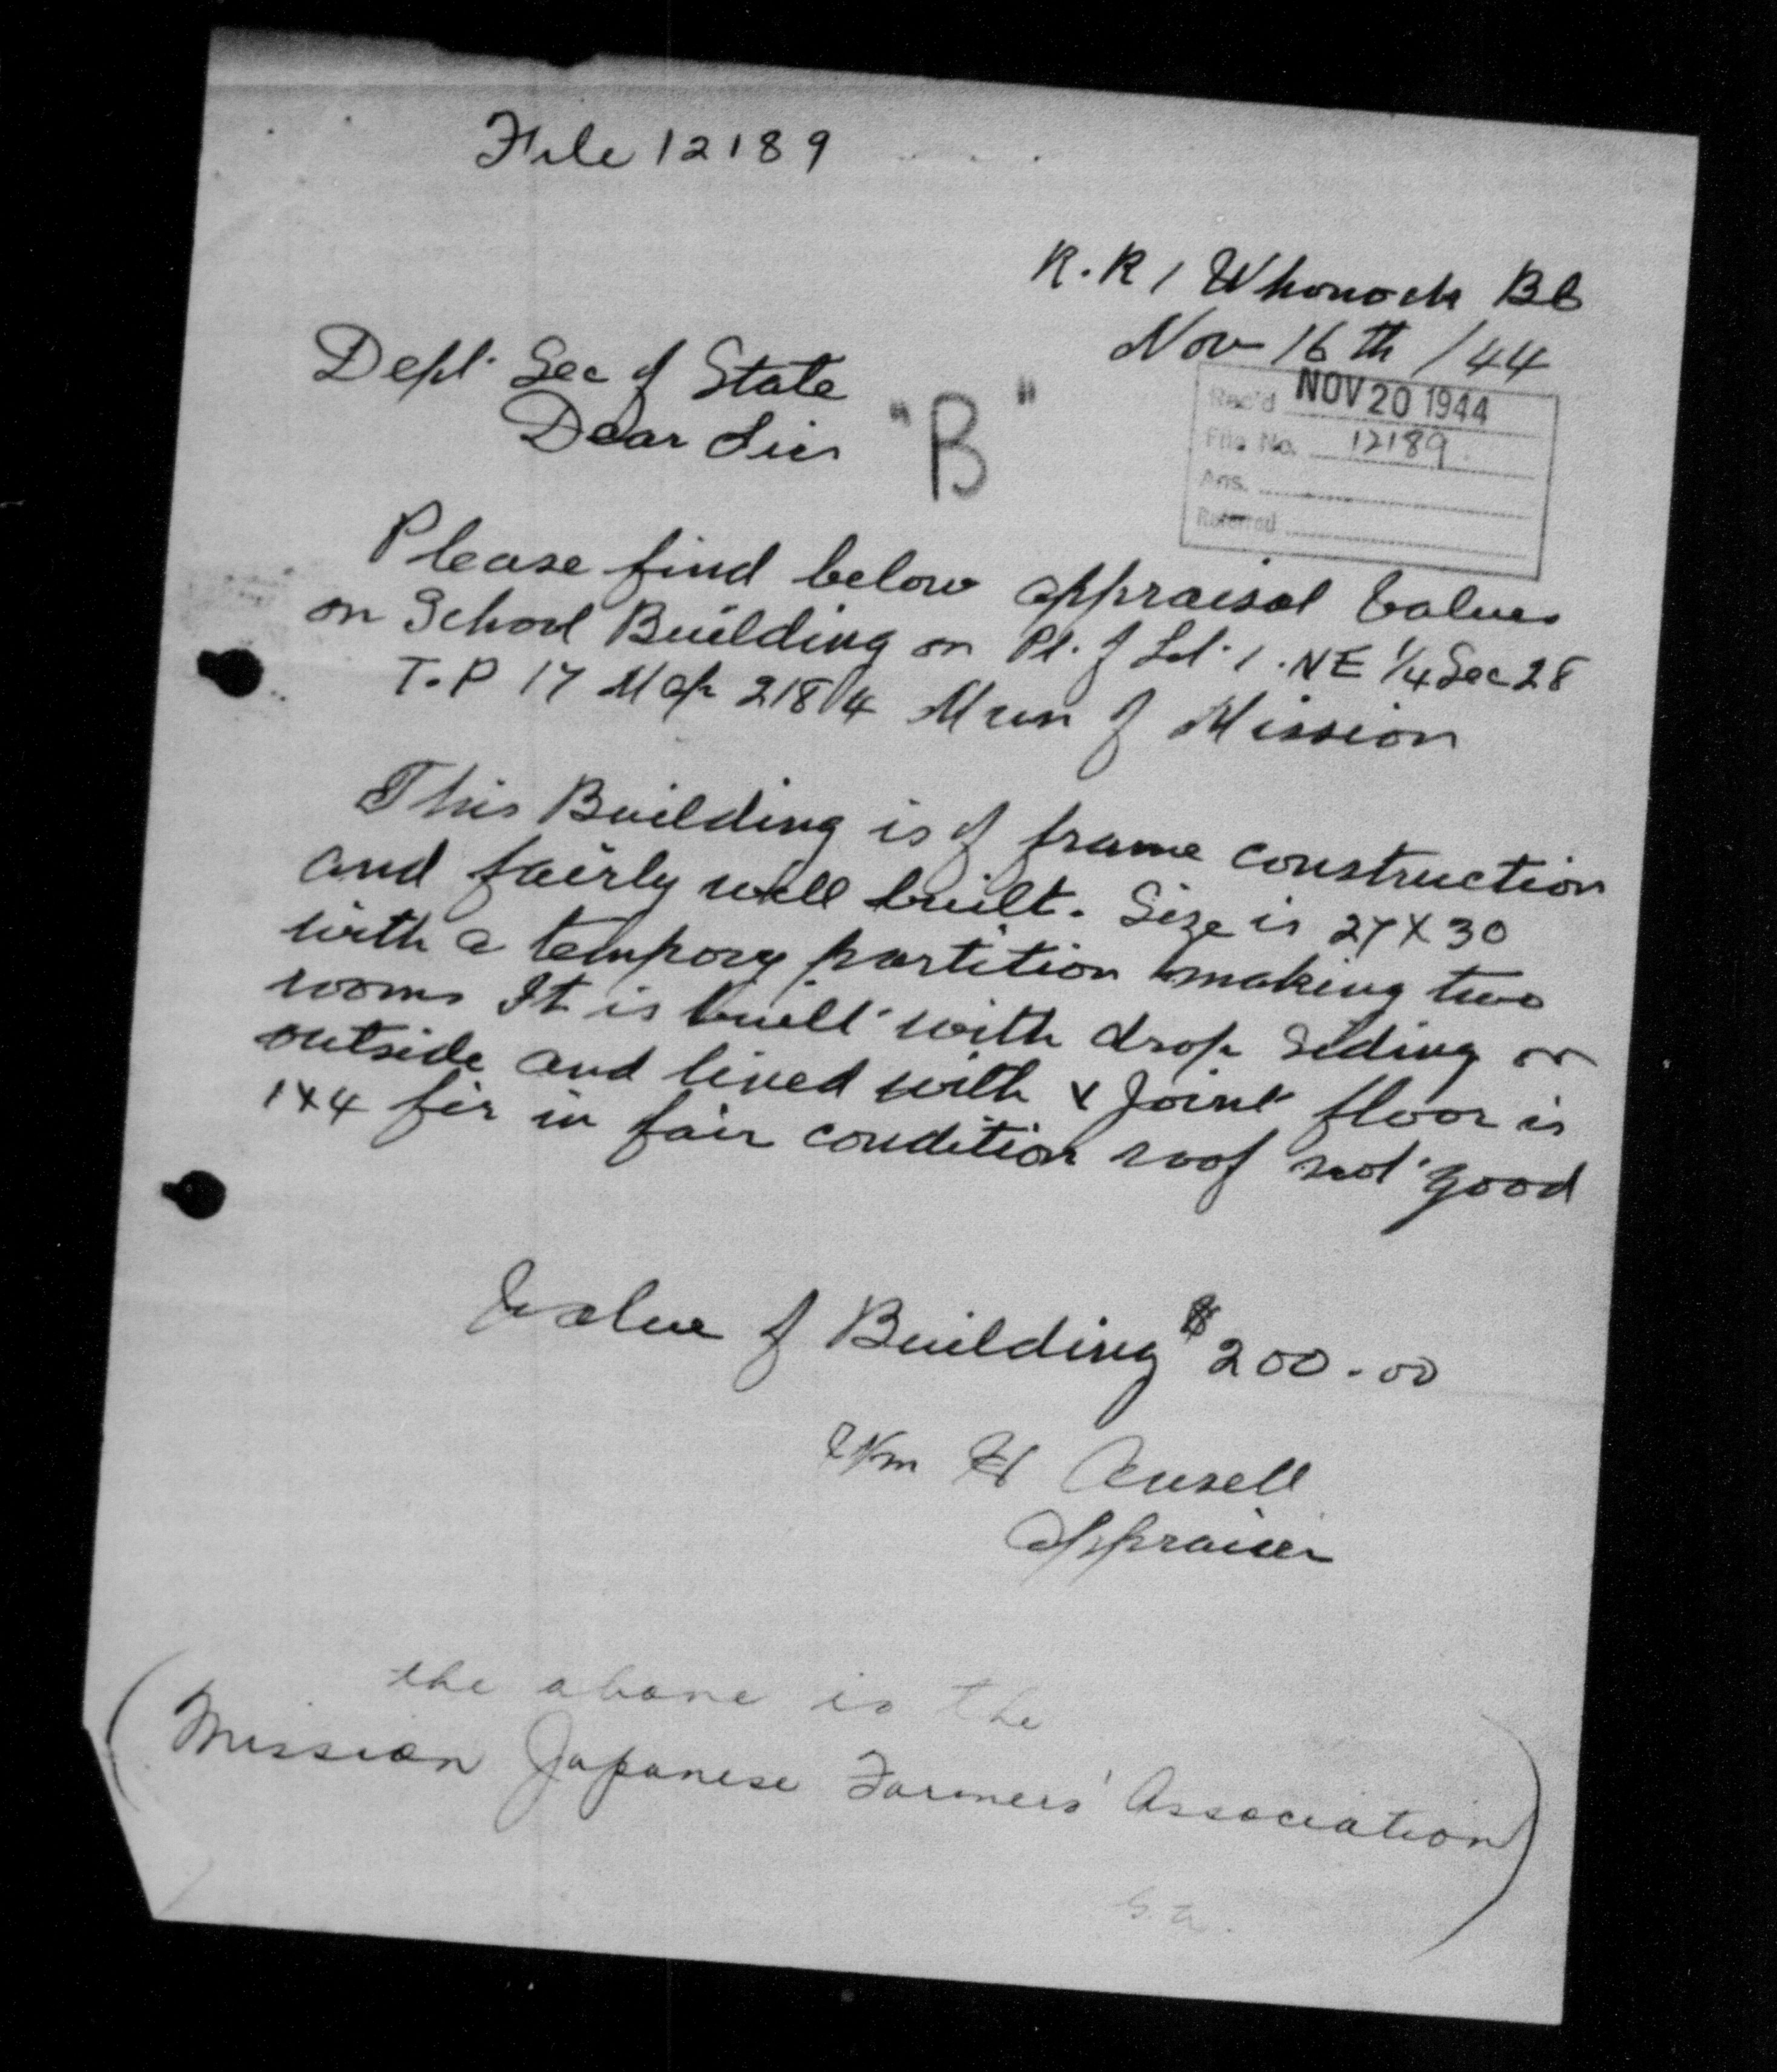 File 12189
R.R 1 Whonock BC
Nov 16th /44
Dept. Sec of State
Dear Sirs
"B"
Rec'd NOV 20 1944
File No. 12189
Ans.
Referred
Please find below appraisal Values
on School Building on Pt. of Lot. 1. NE 1/4 Sec 28
T.P 17 Map 2184 Mun of Mission
This Building is of frame construction
and fairly well built. Size is 27 X 30
with a tempory partition making two
rooms It is built with drop siding on
outside and lined with v Joint floor is
1x4 fir in fair condition roof not good
Value of Building $200.00
Wm H Ansell
Appraiser
the above is the
(Mission Japanese Farmers' Association)